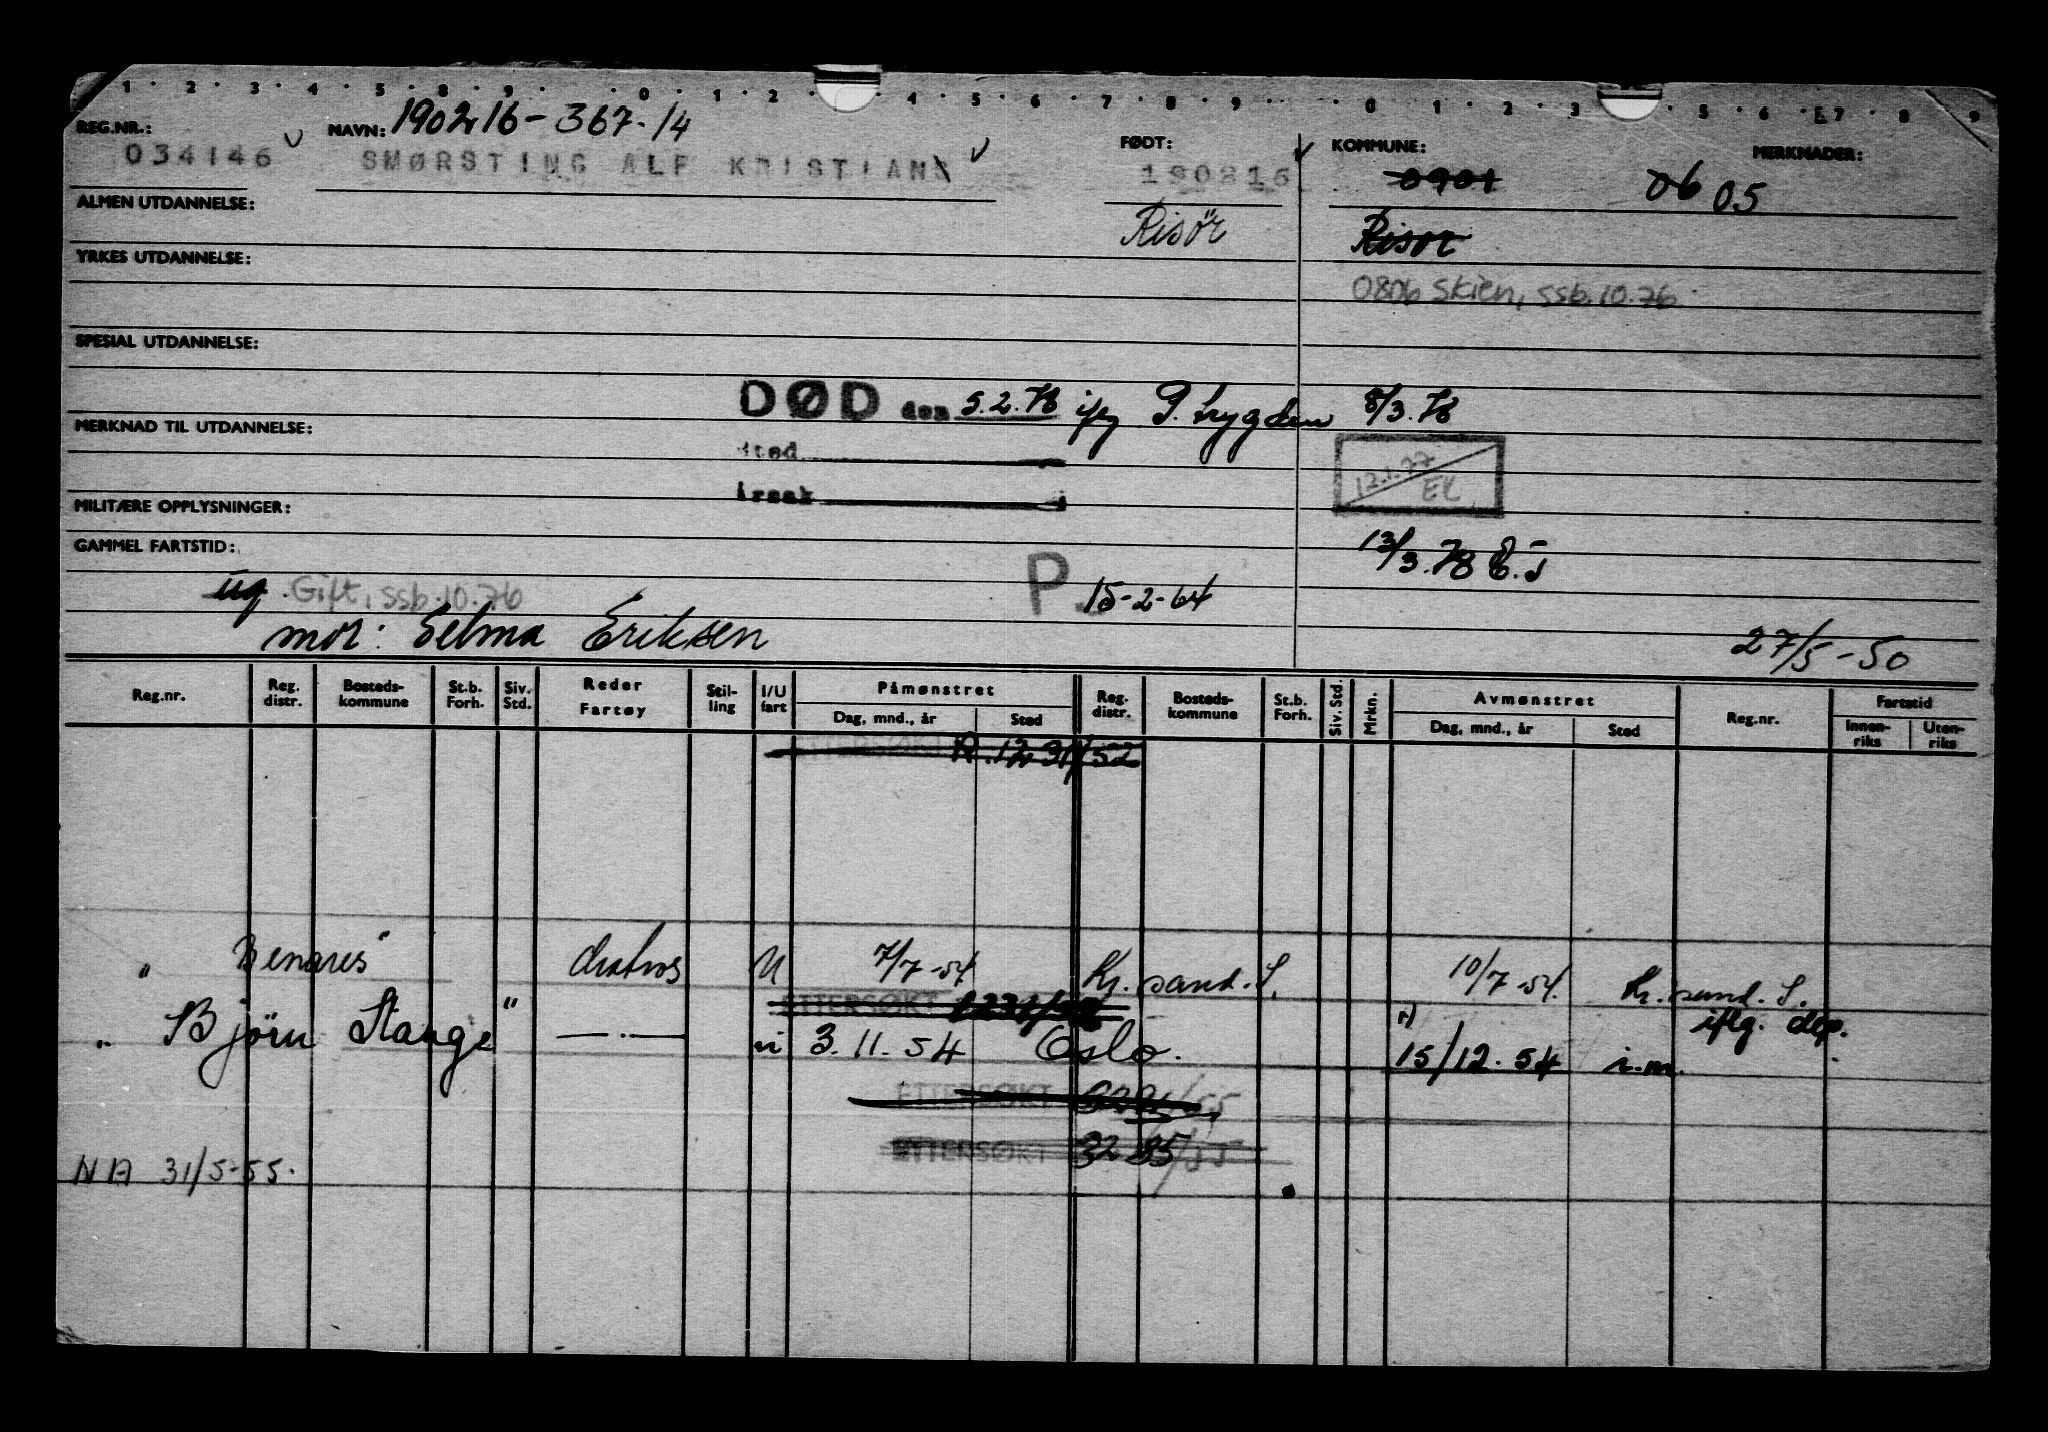 1 2 3 4 5 8 9 0 1 2 4 5 6 7 8 9 0 1 2 3 5 6 7 8 9
REG.NR.: NAVN: 190216-367.14 FØDT: KOMMUNE: MERKNADER:
034146 SMØRSTING ALF KRISTIAN 190216 0901 06 05
ALMEN UTDANNELSE: Risör Risør
YRKES UTDANNELSE:
0806 Skien, ssb.10.76
SPESIAL UTDANNELSE:
DØD den 5.2.78 ifg P. trygden 8/3.78
MERKNAD TIL UTDANNELSE:
sted
12.1.77 EK
årsak
MILITÆRE OPPLYSNINGER:
GAMMEL FARTSTID: 13/3.78
ug. Gift, ssb.10.76 P. 15-2-64
mor: Selma Eriksen 27/5-50
Reg.nr. Reg. distr. Bosteds-kommune St.b. Forh. Siv. Std. Reder Fartøy Stil-ling I/U fart Påmønstret Dag, mnd., år Sted Reg. distr. Bosteds-kommune St.b. Forh. Siv. Std. Mrkn. Avmønstret Dag, mnd., år Sted Reg.nr. Fartstid Innen-riks Uten-riks
"Benares" U 7/7-54 Kr.sand.S. 10/7-54. Kr.sand.S.
ETTERSØKT
iflg. dep.
"Björn Stange" — . — 3.11.54 Oslo. 15/12.54 i.m.
ETTERSØKT
ETTERSØKT
NA 31/5-55.